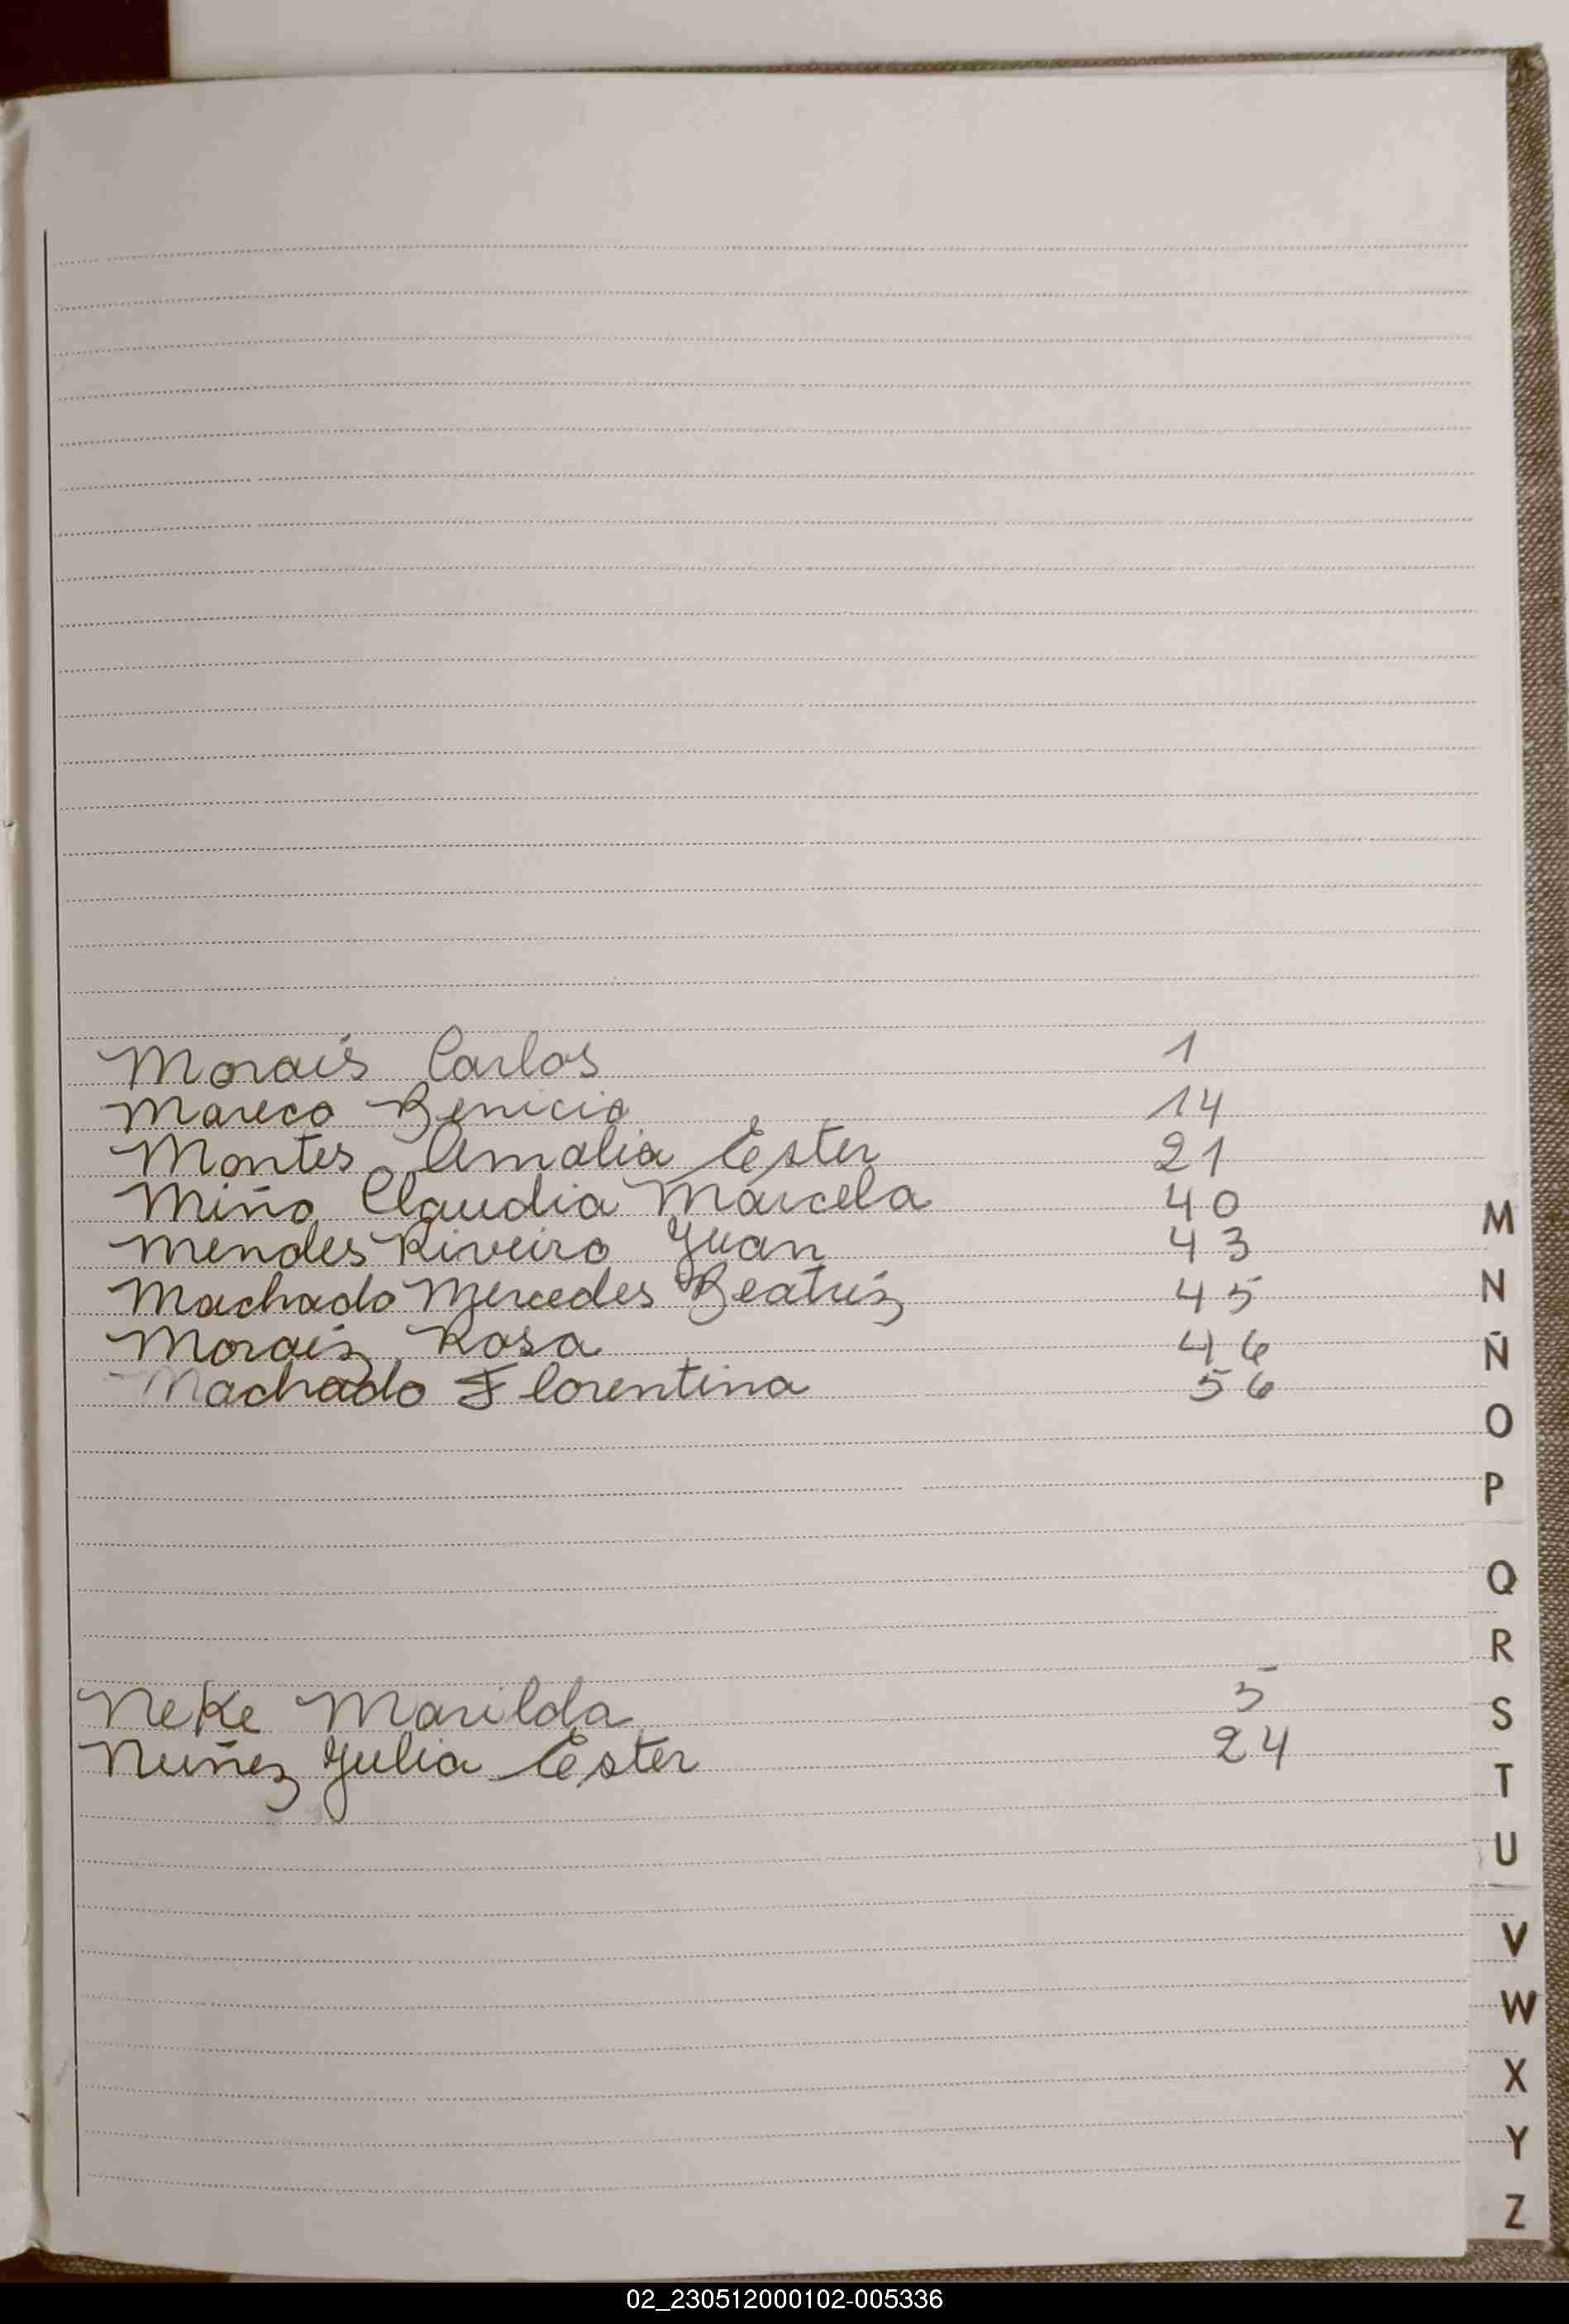 Morais Carlos 1
Mareco Benicio 14
Montes Amalia Ester 21
Miño Claudia Marcela 40
Mendes Riveiro Juan 43
Machado Mercedes Beatriz 45
Moraiz Rosa 46
Machado Florentina 56
Neke Marilda 5
Nuñez Julia Ester 24
M
N
Ñ
O
P
Q
R
S
T
U
V
W
X
Y
Z
02_230512000102-005336